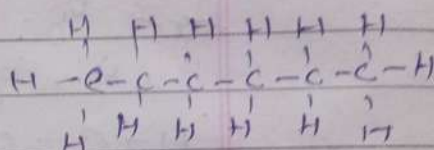 H H H H H H
H - C - C - C - C - C - C - H
H H H H H H